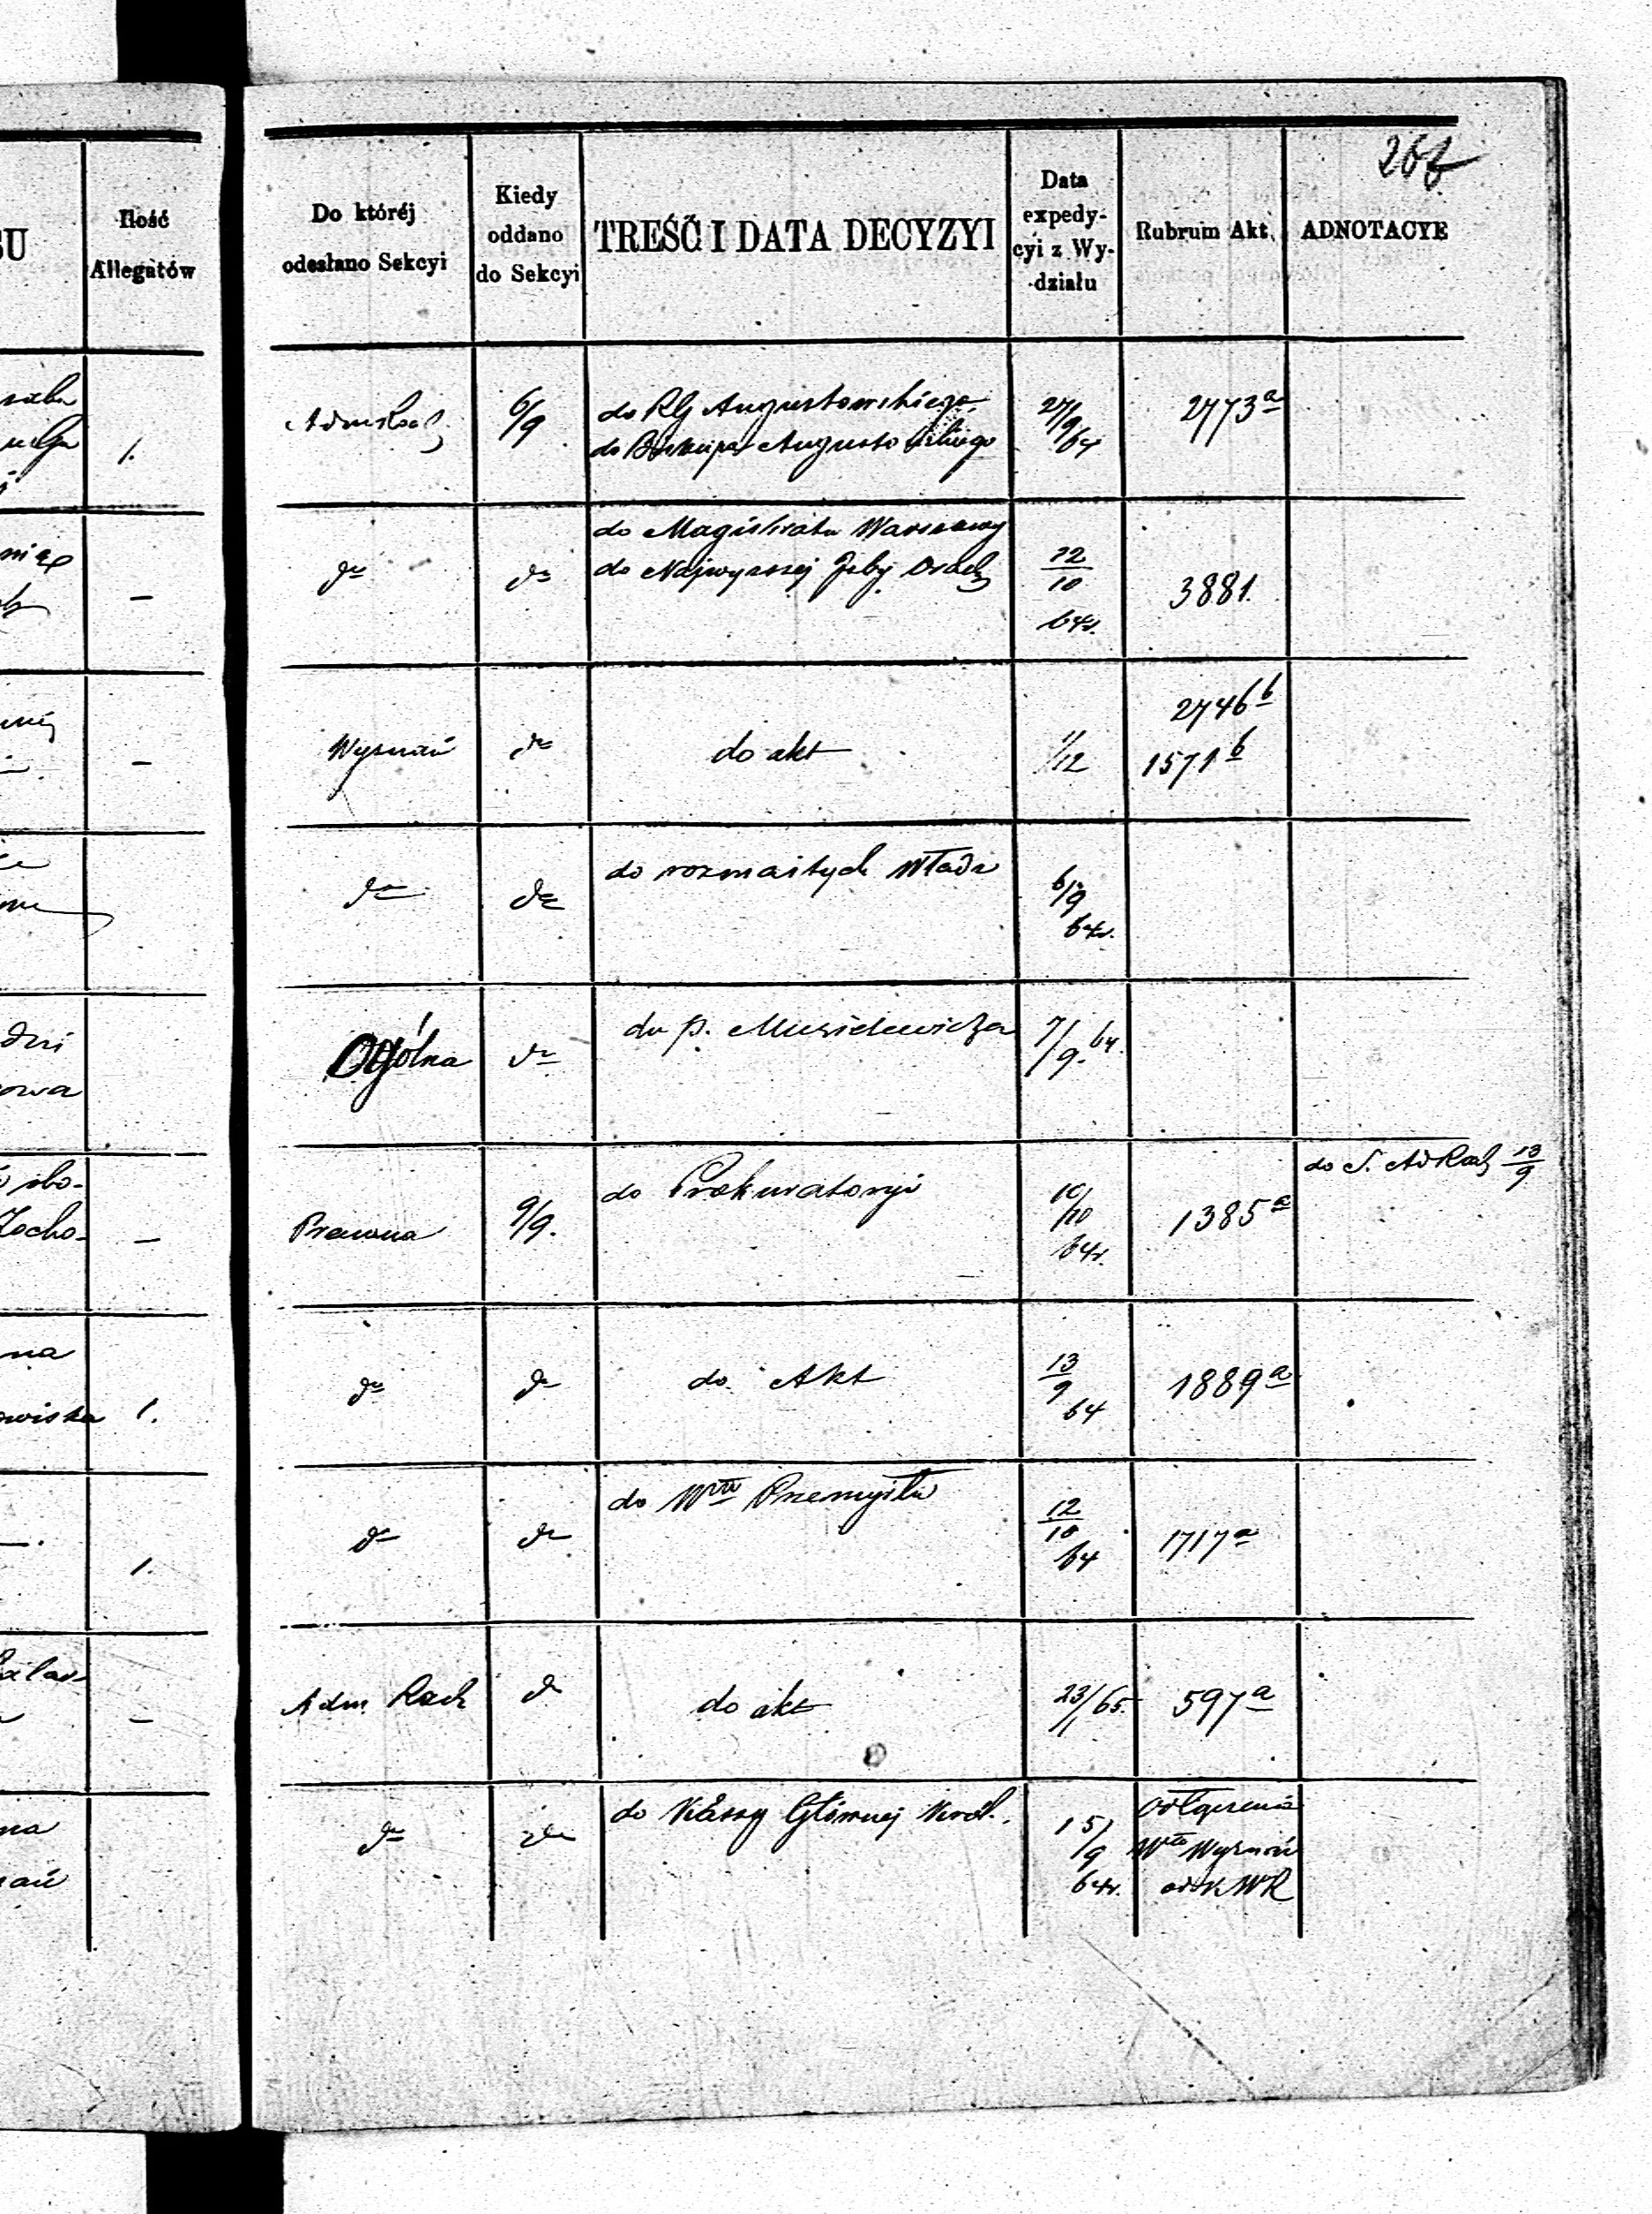 26
Ilość
Allegatów
Do któréj
odesłano Sekcyi
Kiedy
oddano
do Sekcyi
TREŚĆ I DATA DECYZYI
Data
expedy-
cyi z Wy-
działu
Rubrum Akt.
ADNOTACYE
1.
6/9
do RG Augustowskiego
do Biskupa Augustowskiego
27/9 64
2773a
—
do
do
do Magistratu Warszawy
do Najwyższej Izby Obrach
12/10
64r.
3881.
—
Wyznań
do
do akt
1/12
2746b
1571b
do
do
do rozmaitych Władz
6/9
64r.
dni
owa
Ogólna
do
do p.
7/9. 64.
Zocho-
—
Prawna
9/9.
do Prokuratoryi
10/10
64r.
1385a
do S. AdRach 13/9
na
owiska
1.
do
do
do Akt
13/9
64
1889a
1.
do
do
do Włu Przemysłu
12/10
64
1717a
—
Adm. Rach
do
do akt
23/1 65.
597a
na
nań
do
do
do Kassy Głównej Król.
15/9
64r.
Odłączenia
Włu Wyznań
od KWR